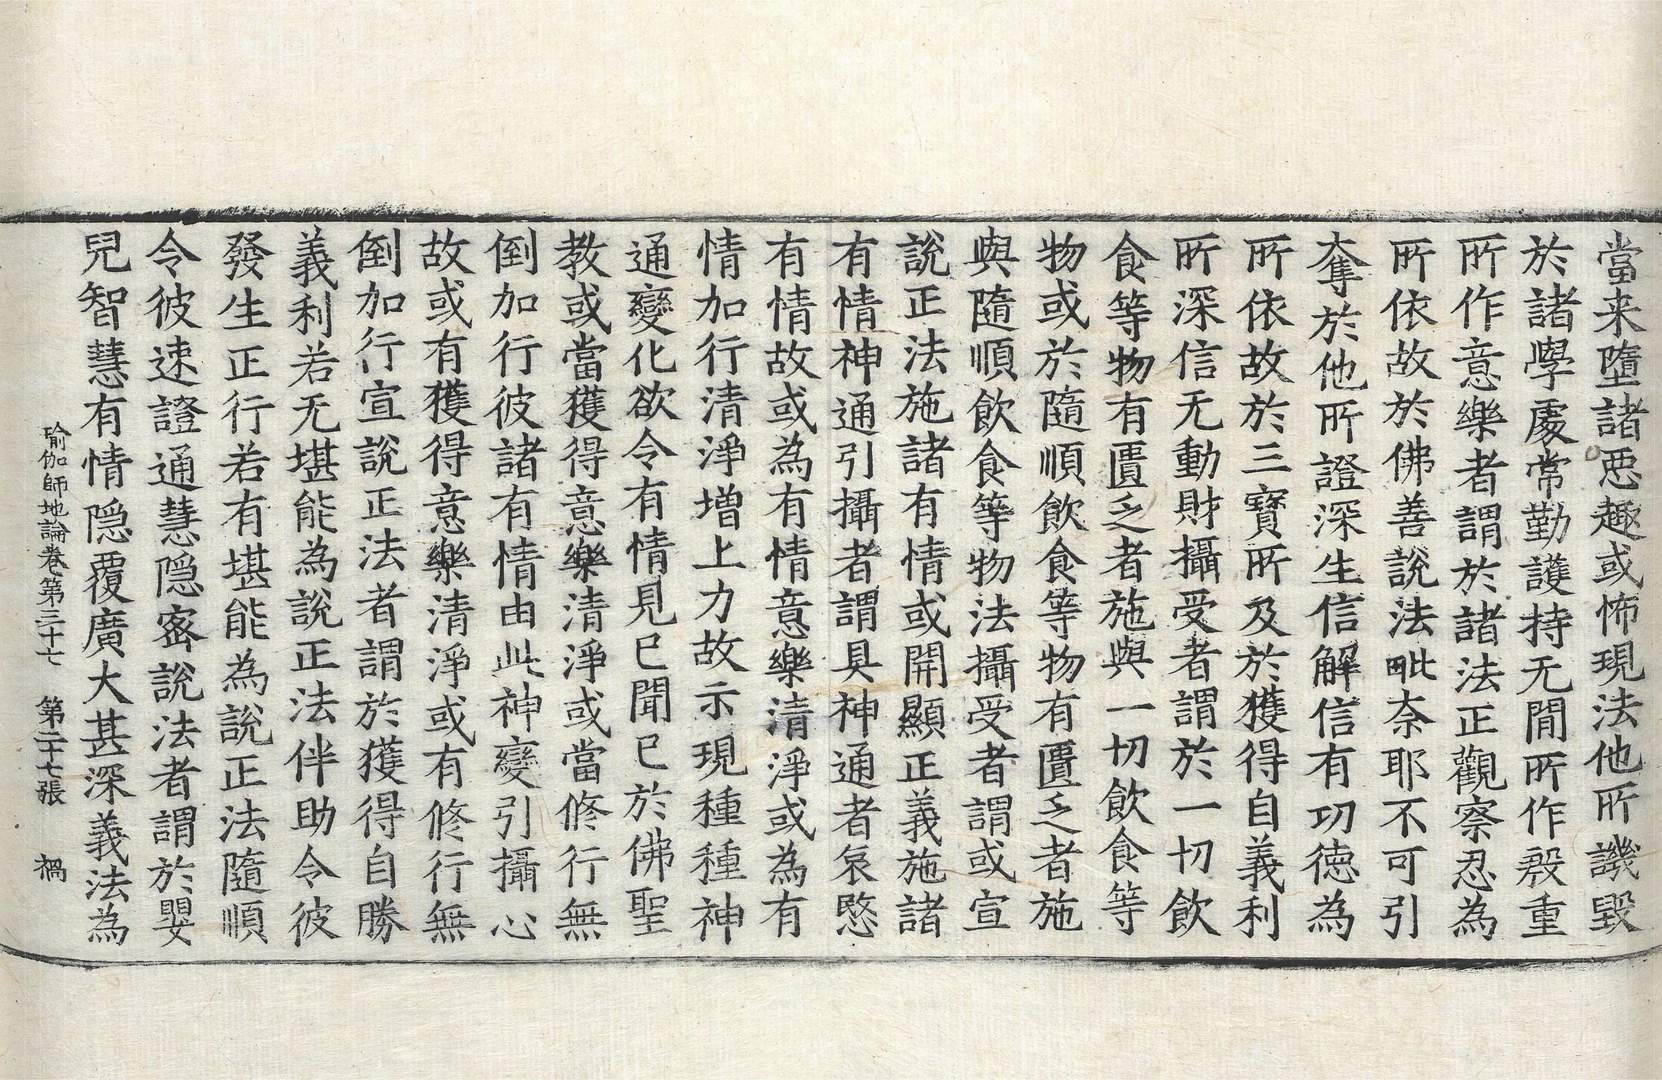 當来墮諸惡趣或怖現法他所譏毀
於諸學處常勤護持无閒所作殷重
所作意樂者謂於諸法正觀察忍為
所依故於佛善說法毗奈耶不可引
奪於他所證深生信解信有功德為
所依故於三寶所及於獲得自義利
所深信无動財攝受者謂於一切飲
食等物有匱乏者施與一切飲食等
物或於隨順飲食等物有匱乏者施
與隨順飲食等物法攝受者謂或宣
說正法施諸有情或開顯正義施諸
有情神通引攝者謂具神通者哀愍
有情故或為有情意樂清淨或為有
情加行清淨增上力故示現種種神
通變化欲令有情見已聞已於佛聖
教或當獲得意樂清淨或當修行無
倒加行彼諸有情由此神變引攝心
故或有獲得意樂清淨或有修行無
倒加行宣說正法者謂於獲得自勝
義利若无堪能為說正法伴助令彼
發生正行若有堪能為說正法隨順
令彼速證通慧隱密說法者謂於嬰
兒智慧有情隱覆廣大甚深義法為
瑜伽師地論卷第三十七 第二十七張 禍